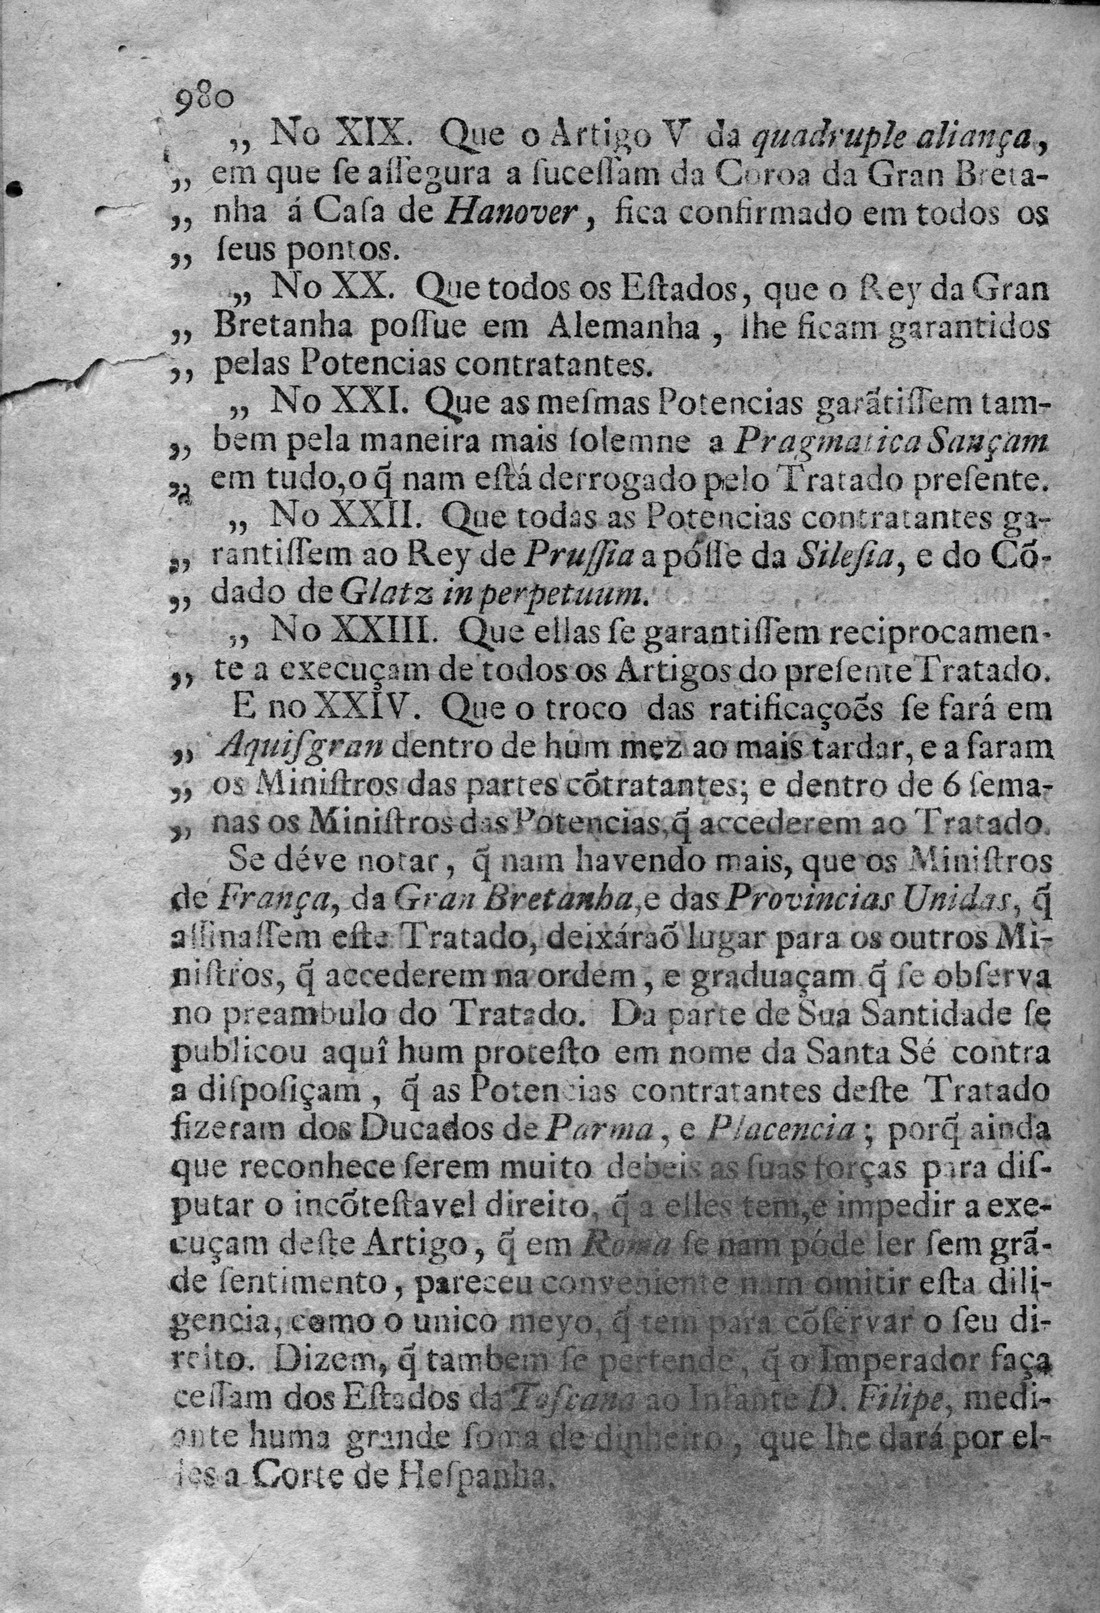 980
„ No XIX. Que o Artigo V da quadruple aliança,
„ em que ſe aſſegura a ſuceſſam da Coroa da Gran Breta-
„ nha á Caſa de Hanover, fica confirmado em todos os
„ ſeus pontos.
„ No XX. Que todos os Eſtados, que o Rey da Gran
„ Bretanha poſſue em Alemanha, lhe ficam garantidos
„ pelas Potencias contratantes.
„ No XXI. Que as meſmas Potencias garãtiſſem tam-
„ bem pela maneira mais ſolemne a Pragmatica Sançam
„ em tudo, o q̃ nam eſtá derrogado pelo Tratado preſente.
„ No XXII. Que todas as Potencias contratantes ga-
„ rantiſſem ao Rey de Pruſſia a póſſe da Sileſia, e do Cõ-
„ dado de Glatz in perpetuum.
„ No XXIII. Que ellas ſe garantiſſem reciprocamen-
„ te a execuçam de todos os Artigos do preſente Tratado.
E no XXIV. Que o troco das ratificaçoẽs ſe fará em
„ Aquiſgran dentro de hum mez ao mais tardar, e a faram
„ os Miniſtros das partes cõtratantes; e dentro de 6 ſema-
„ nas os Miniſtros das Potencias, q̃ accederem ao Tratado.
Se déve notar, q̃ nam havendo mais, que os Miniſtros
de França, da Gran Bretanha, e das Provincias Unidas, q̃
aſſinaſſem eſte Tratado, deixáraõ lugar para os outros Mi-
niſtros, q̃ accederem na ordem, e graduaçam q̃ ſe obſerva
no preambulo do Tratado. Da parte de Sua Santidade ſe
publicou aquî hum proteſto em nome da Santa Sé contra
a diſpoſiçam, q̃ as Potencias contratantes deſte Tratado
fizeram dos Ducados de Parma, e Placencia; porq̃ ainda
que reconhece ſerem muito debeis as ſuas forças para diſ-
putar o incõteſtavel direito, q̃ a elles tem, e impedir a exe-
cuçam deſte Artigo, q̃ em Roma ſe nam póde ler ſem grã-
de ſentimento, pareceu conveniente nam omitir eſta dili-
gencia, como o unico meyo, q̃ tem para cõſervar o ſeu di-
reito. Dizem, q̃ tambem ſe pertende, q̃ o Imperador faça
ceſſam dos Eſtados da Toſcana ao Infante D. Filipe, medi-
ante huma grande ſoma de dinheiro, que lhe dará por el-
les a Corte de Heſpanha.